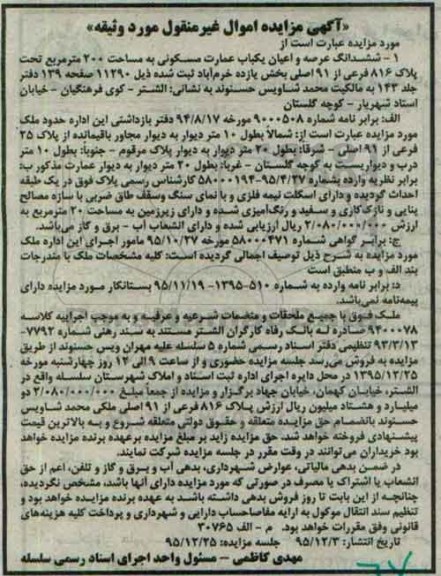 «آگهی مزایده اموال غیرمنقول مورد وثیقه»
مورد مزایده عبارت است از
۱ – ششدانگ عرصه و اعیان یکباب عمارت مسکونی به مساحت ۲۰۰ مترمربع تحت
پلاک ۸۱۶ فرعی از ۹۱ اصلی بخش یازده خرم‌آباد ثبت شده ذیل ۱۱۲۹۰ صفحه ۱۳۹ دفتر
جلد ۱۴۳ به مالکیت محمد شاویس حسنوند به نشانی: الشتر – کوی فرهنگیان – خیابان
استاد شهریار – کوچه گلستان
الف: برابر نامه شماره ۹۰۰۰۵۰۸ مورخه ۹۴/۸/۱۷ دفتر بازداشتی این اداره حدود ملک
مورد مزایده عبارت است از: شمالاً بطول ۱۰ متر دیوار به دیوار مجاور باقیمانده از پلاک ۲۵
فرعی از ۹۱ اصلی – شرقا: بطول ۲۰ متر دیوار به دیوار پلاک مرقوم – جنوبا: بطول ۱۰ متر
درب و دیواریست به کوچه گلستان – غربا: بطول ۲۰ متر دیوار به دیوار عمارت مذکور ب:
برابر نظریه وارده بشماره ۵۸۰۰۰۱۹۴-۹۵/۴/۲۷ کارشناس رسمی پلاک فوق در یک طبقه
احداث گردیده و دارای اسکلت نیمه فلزی و با نمای سنگ وسقف طاق ضربی با سازه مصالح
بنایی و نازک‌کاری و سفید و رنگ‌آمیزی شده و دارای زیرزمین به مساحت ۲۰ مترمربع به
ارزش ۲/۰۸۰/۰۰۰/۰۰۰ ریال ارزیابی شده و دارای انشعاب آب – برق و گاز می‌باشد.
ج: برابر گواهی شماره ۵۸۰۰۰۴۷۱ مورخه ۹۵/۱۰/۲۷ مامور اجرای این اداره ملک
مورد مزایده به شرح ذیل توصیف اجمالی گردیده است: کلیه مشخصات ملک با مندرجات
بند الف و ب منطبق است
د: برابر نامه وارده به شماره ۵۱۰–۱۳۹۵– ۹۵/۱۱/۱۹ بستانکار مورد مزایده دارای
بیمه‌نامه نمی‌باشد.
ملک فوق با جمیع ملحقات و منضمات شرعیه و عرفیه و به موجب اجراییه کلاسه
۹۴۰۰۰۷۸ صادره له بانک رفاه کارگران الشتر مستند به سند رهنی شماره ۷۷۹۲–
۹۳/۳/۱۳ تنظیمی دفتر اسناد رسمی شماره ۵ سلسله علیه مهران ویس حسنوند از طریق
مزایده به فروش می‌رسد جلسه مزایده حضوری و از ساعت ۹ الی ۱۲ روز چهارشنبه مورخه
۱۳۹۵/۱۲/۲۵ در محل دایره اجرای اداره ثبت اسناد و املاک شهرستان سلسله واقع در
الشتر، خیابان کهمان، خیابان جهاد برگزار و مزایده از جمعاً مبلغ ۲/۰۸۰/۰۰۰/۰۰۰ دو
میلیارد و هشتاد میلیون ریال ارزش پلاک ۸۱۶ فرعی از ۹۱ اصلی ملکی محمد شاویس
حسنوند بانضمام حق مزایده متعلقه و حقوق دولتی متعلقه شروع و به بالاترین قیمت
پیشنهادی فروخته خواهد شد، حق مزایده زاید بر مبلغ مزایده برعهده برنده مزایده خواهد
بود خریداران می‌توانند در وقت مقرر در جلسه مزایده شرکت نمایند.
در ضمن بدهی مالیاتی، عوارض شهرداری، بدهی آب و برق و گاز و تلفن، اعم از حق
انشعاب یا اشتراک یا مصرف در صورتی که مورد مزایده دارای آنها باشد، مشخص نگردیده،
چنانچه از این بابت تا روز فروش بدهی داشته باشد به عهده برنده مزایده خواهد بود و
تنظیم سند انتقال موکول به ارایه مفاصاحساب دارایی و شهرداری و پرداخت کلیه هزینه‌های
قانونی وفق مقررات خواهد بود. م – الف ۳۰۷۶۵
تاریخ انتشار: ۹۵/۱۲/۳ جلسه مزایده: ۹۵/۱۲/۲۵
مهدی کاظمی – مسئول واحد اجرای اسناد رسمی سلسله